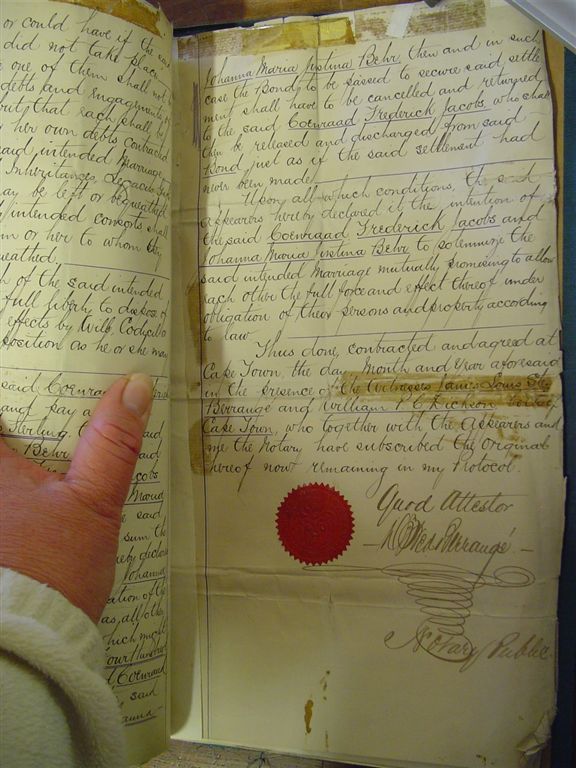 or could have if the
did not take place
one of them shall not
debts and engagements
but that each shall
her own debts contracted
said intended Marriage
Inheritances, Legacies
may be left or bequeathed
intended consorts shall
or her to whom
queathed
of the said intended
full liberty to dispose of
effects by Will, Codicil
position as he or she may
said Coenraad
and pay
Sterling
Behr said
Jacobs
Maria
said
sum the
hereby declare
Johanna
as, all other
which might
Four Hundred
Coenraad
said
Johanna Maria Justina Behr, then and in such
case the Bond to be passed to secure said settle
ment shall have to be cancelled and returned
to the said Coenraad Frederick Jacobs, who shall
then be released and discharged from said
Bond just as if the said settlement had
never been made
Upon all which conditions, the said
Appearers hereby declared it the intention of
the said Coenraad Frederick Jacobs and
Johanna Maria Justina Behr to solemnize the
said intended Marriage mutually promising to allow
each other the full force and effect thereof under
obligation of their persons and property according
to law.
Thus done, contracted and agreed at
Cape Town, the day, Month and Year aforesaid
in the presence of the Witnesses James Louis
Berrange and William P. C. Dickson
Cape Town, who together with the Appearers and
me the Notary have subscribed the Original
hereof now remaining in my Protocol.
Quod Attestor
Berrangé
Notary Public